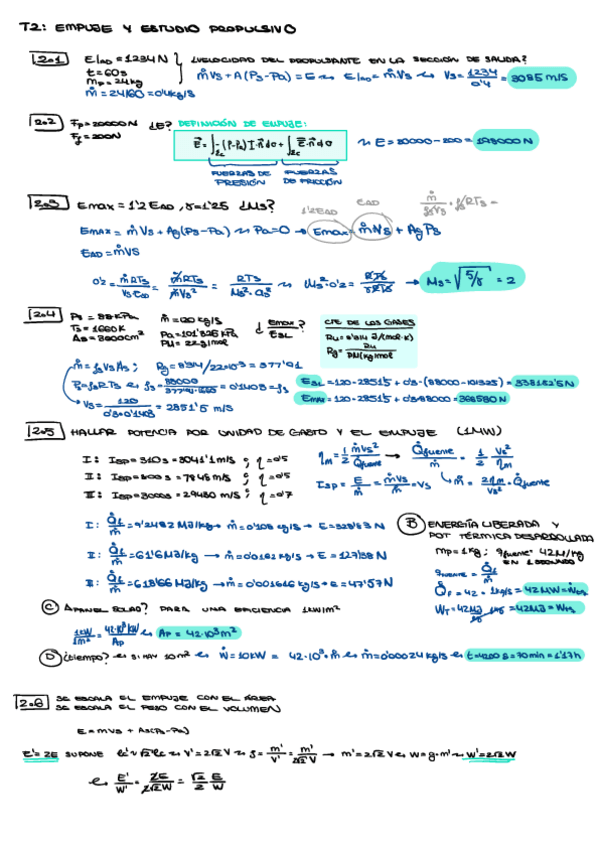 T2: EMPUJE Y ESTUDIO PROPULSIVO
2.01 E|AD = 1234N
t = 60s
mp = 24kg
ṁ = 24/60 = 0'4kg/s
¿VELOCIDAD DEL PROPULSANTE EN LA SECCIÓN DE SALIDA?
ṁVs + A(Ps-Pa) = E E|AD = ṁVs Vs = 1234/0'4 = 3085 m/s
2.02 Fp = 20000N
Ff = 200N
¿E? DEFINICIÓN DE EMPUJE:
FUERZAS DE PRESIÓN FUERZAS DE FRICCIÓN
2.03 Emax = 1'2 EAD, γ = 1'25 ¿Ms?
1'2EAD EAD
Emax = ṁVs + As(Ps-Pa) Pa = 0 → Emax = ṁVs + AsPs
EAD = ṁVs
→ Ms = √(5/γ) = 2
2.04 Ps = 88kPa
Ts = 1660K
As = 3000cm²
ṁ = 120 kg/s
Pa = 101'325 kPa
PM = 22g/mol
¿Emax/ESL?
CTE DE LOS GASES
Ru = 8'314 J/(mol·K)
Rg = Ru/PM(kg/mol)
ṁ = ρsVsAs; Rg = 8'314/22·10⁻³ = 377'91
Ps = ρsRTs ρs = 88000/377'91·1660 = 0'1403 = ρs
Vs = 120/0'3·0'1403 = 2851'5 m/s
ESL = 120·2851'5 + 0'3·(88000-101325) = 338182'5N
Emax = 120·2851'5 + 0'3·88000 = 368580N
2.05 HALLAR POTENCIA POR UNIDAD DE GASTO Y EL EMPUJE (1MW)
I: Isp = 310s = 3041'1 m/s; η = 0'5
II: Isp = 800s = 7848 m/s; η = 0'5
III: Isp = 3000s = 29430 m/s; η = 0'7
ηm = 1/2 ṁVs²/Q̇fuente → Q̇fuente/ṁ = 1/2 Vs²/ηm
Isp = E/ṁ = ṁVs/ṁ = Vs ṁ = 2ηm/Vs² · Q̇fuente
I: Q̇f/ṁ = 9'2482 MJ/kg → ṁ = 0'108 kg/s → E = 328'83 N
II: Q̇f/ṁ = 61'6 MJ/kg → ṁ = 0'0162 kg/s → E = 127'38 N
III: Q̇f/ṁ = 618'66 MJ/kg → ṁ = 0'001616 kg/s → E = 47'57N
B ENERGÍA LIBERADA Y
POT TÉRMICA DESARROLLADA
mp = 1kg; qfuente = 42MJ/kg
EN 1 SEGUNDO
qfuente = Q̇f/ṁ
Q̇f = 42 · 1kg/s = 42MW
C APANEL SOLAR? PARA UNA EFICIENCIA 1kW/m²
1kW/1m² = 42·10³kW/Ap Ap = 42·10³m²
D ¿tiempo? SI HAY 10m² Ẇ = 10kW = 42·10³·ṁ ṁ = 0'00024kg/s t = 4200s = 70min = 1'17h
2.06 SE ESCALA EL EMPUJE CON EL ÁREA
SE ESCALA EL PESO CON EL VOLUMEN
E = ṁVs + As(Ps-Pa)
E' = 2E SUPONE lc' = √2 lc V' = 2√2 V ρ = m'/V' = m'/2√2V → m' = 2√2 V W = g·m' W' = 2√2W
E'/W' = 2E/2√2W = √2/2 E/W